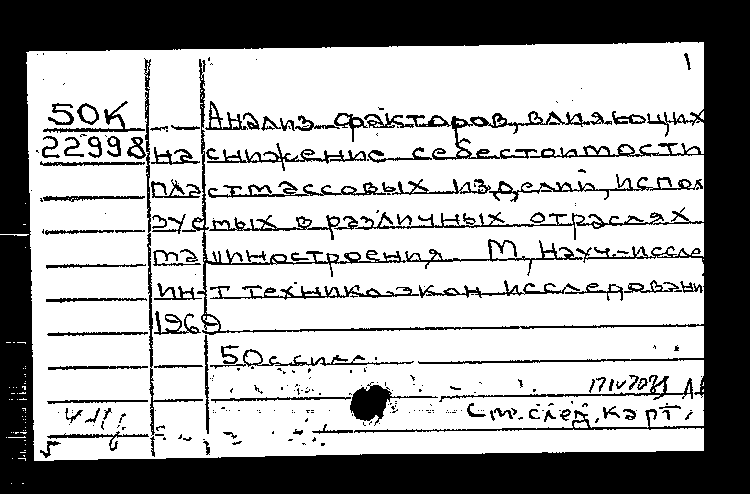 1
50К Анализ факторов, влияющих
22998 на снижение себестоимости
пластмассовых изделий, испол
зуемых в различных отраслях
машиностроения. М., Науч.-иссле
ин-т технико-экон исследовани
1969
50 с сила.
См. след. карт.